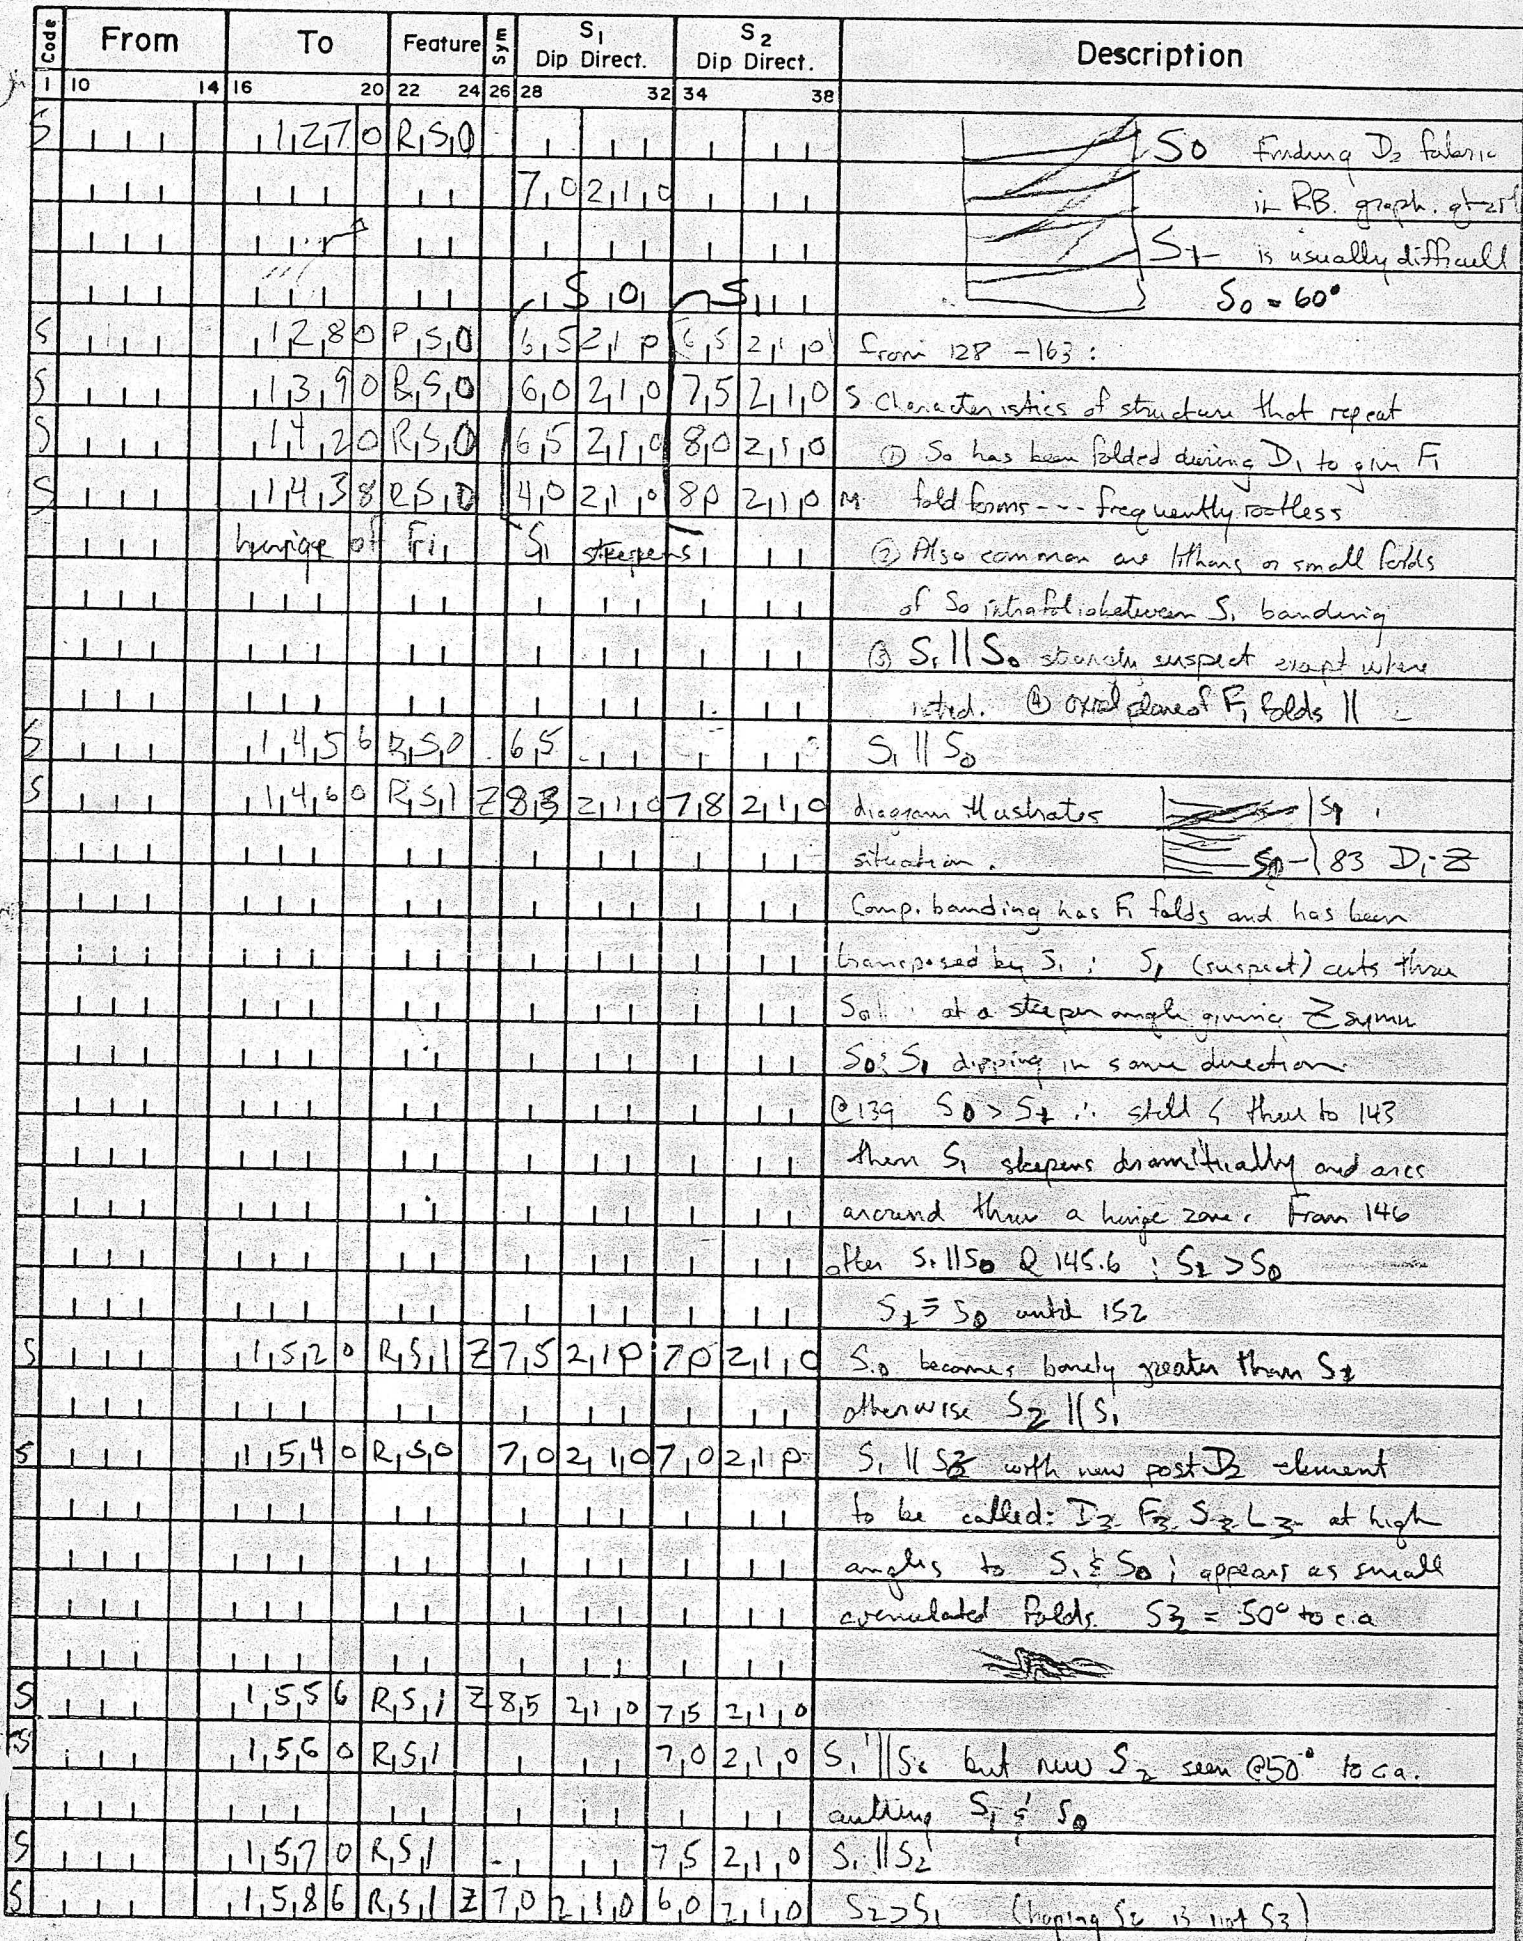 Code From To Feature Sym S1 Dip Direct. S2 Dip Direct. Description
1 10 14 16 20 22 24 26 28 32 34 38
S 1270 RS0 S0 Finding D2 fabric
70 210 in RB. graph.
S1 is usually difficult
S0 S1 S0 = 60°
S 1280 PS0 65 210 65 210 from 128 - 163 :
S 1390 RS0 60 210 75 210 S Characteristics of structure that repeat
S 1420 RS0 65 210 80 210 ① So has been folded during D1 to give F1
S 1438 RS0 40 210 80 210 M fold forms --- frequently rootless
of F1, S1 steepens ② Also common are or small folds
of So between S1 banding
③ S1 || S0 suspect except where
noted. ④ axial plane of F1 folds ||
S 1456 RS0 65 S1 || S0
S 1460 RS1 Z 83 210 78 210 diagram illustrates S1
situation. S0 - 83 D1-Z
Comp. banding has F1 folds and has been
transposed by S1 ; S1 (suspect) cuts thru
S0 at a steeper angle giving Z symm
S0 : S1 dipping in same direction.
@ 139 S0 > S1 ∴ still S thru to 143
then S1 steepens dramitically and arcs
around thru a hinge zone. From 146
after S1 || S0 @ 145.6 : S1 > S0
S1 = S0 until 152
S 1520 RS1 Z 75 210 70 210 S0 becomes barely greater than S1
otherwise S2 || S1
S 1540 RS0 70 210 70 210 S1 || S2 with new post D2 element
to be called: D3 F3 S3 L3 at high
angles to S1 & S0 ; appears as small
crenulated folds. S3 = 50° to c.a
S 1556 RS1 Z 85 210 75 210
S 1560 RS1 70 210 S1 || S0 but new S2 seen @50° to ca.
cutting S1 & S0
S 1570 RS1 75 210 S1 || S2
S 1586 RS1 Z 70 210 60 210 S2 > S1 (hoping S2 is not S3)